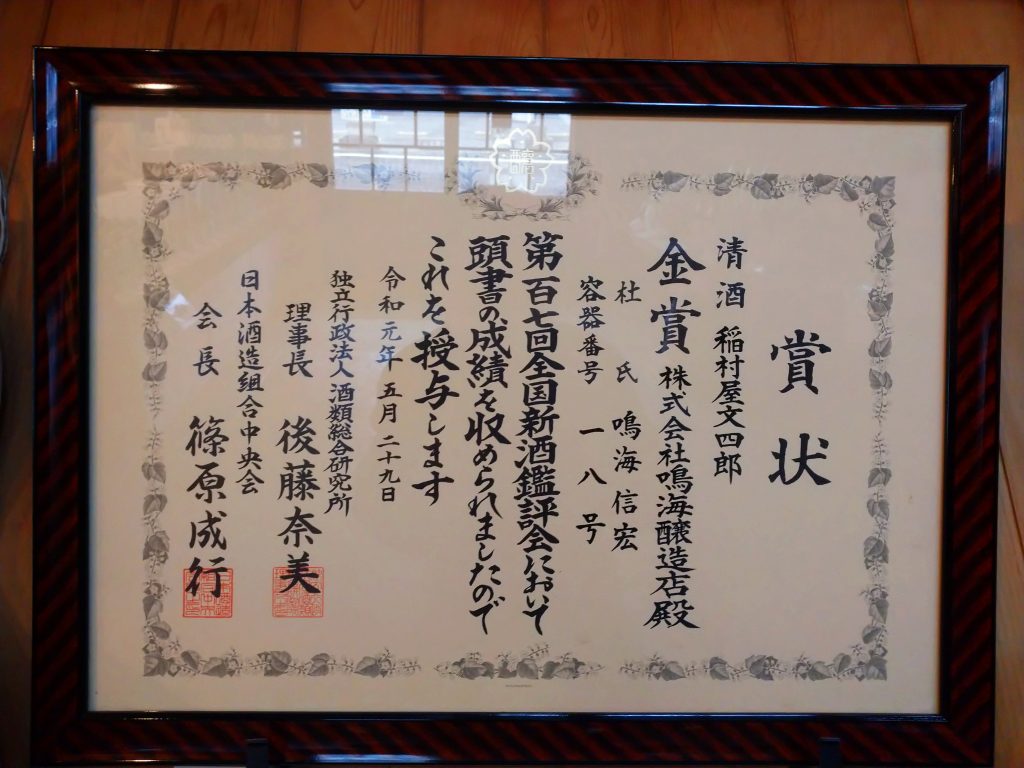 賞状
清酒 稲村屋文四郎
金賞 株式会社鳴海醸造店殿
杜氏 鳴海信宏
容器番号 一八号
第百七回全国新酒鑑評会において
頭書の成績を収められましたので
これを授与します
令和元年五月二十九日
独立行政法人酒類総合研究所
理事長 後藤奈美
日本酒造組合中央会
会長 篠原成行